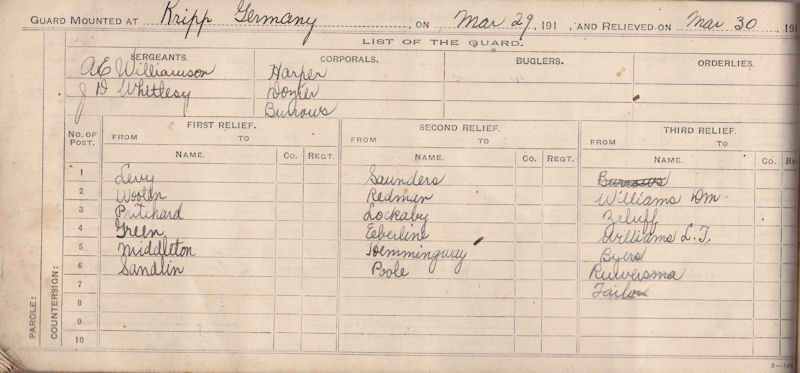 GUARD MOUNTED AT Kripp Germany, ON Mar 29, 191 , AND RELIEVED ON Mar 30 191
LIST OF THE GUARD.
SERGEANTS. CORPORALS. BUGLERS. ORDERLIES.
AE Williamson Harper
J D Whitlesy Dozier
Burrows
NO. OF POST. FIRST RELIEF. SECOND RELIEF. THIRD RELIEF.
FROM TO FROM TO FROM TO
NAME. CO. REGT. NAME. CO. REGT. NAME. CO. R
1 Levy Saunders Burrows
2 Wooten Redman Williams DM.
3 Pritchard Lockaby Zeluff
4 Green Eeberline Williams L.T.
5 Middleton Hemmingway Byers
6 Sandlin Poole Ruwersma
7 Tailor
8
9
10
PAROLE:
COUNTERSIGN: